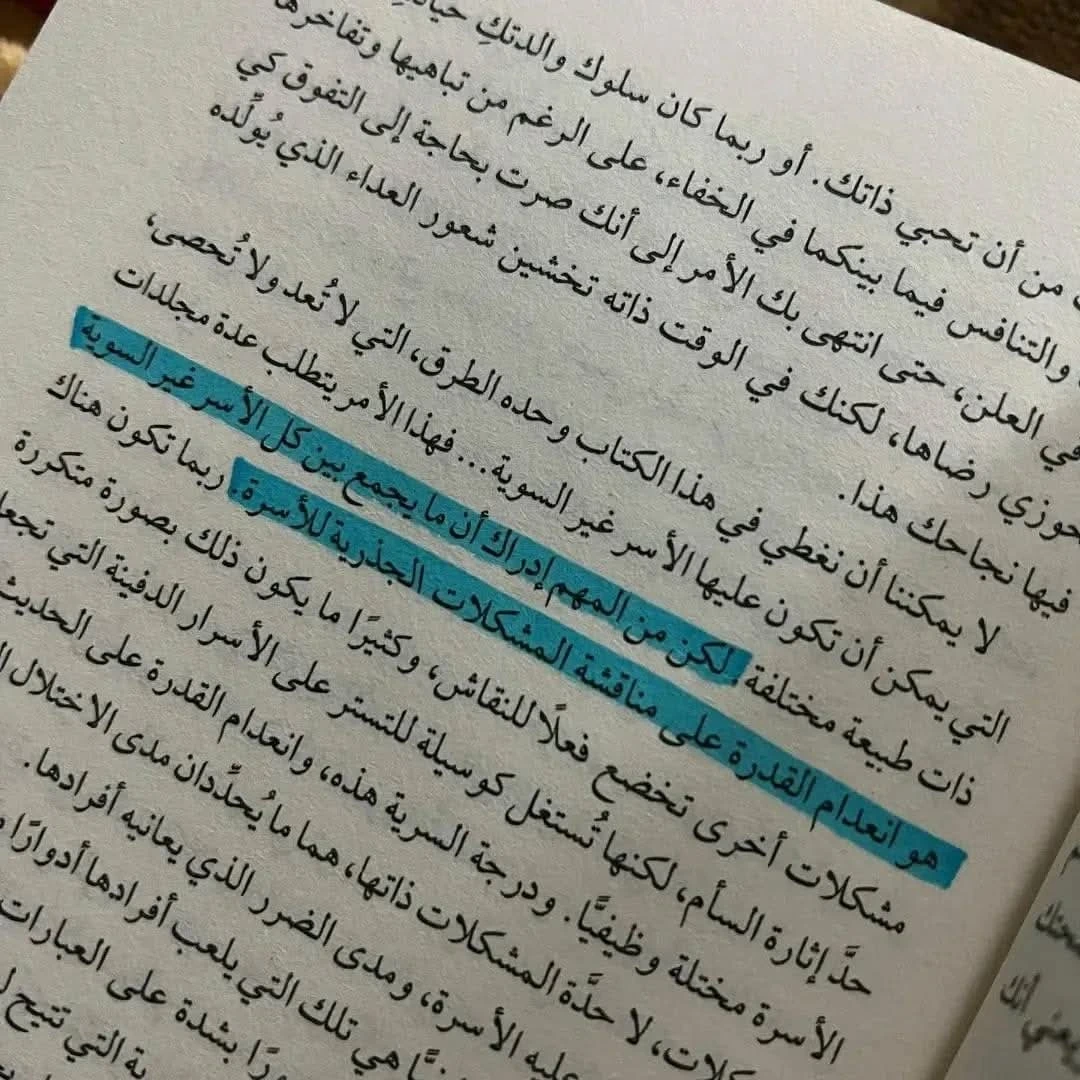 من أن تحبي ذاتك. أو ربما كان سلوك والدتكِ
والتنافس فيما بينكما في الخفاء، على الرغم من تباهيها وتفاخرها
في العلن، حتى انتهى بك الأمر إلى أنك صرت بحاجة إلى التفوق كي
تحوزي رضاها، لكنك في الوقت ذاته تخشين شعور العداء الذي يُولِّده
فيها نجاحك هذا.
لا يمكننا أن نغطي في هذا الكتاب وحده الطرق، التي لا تُعد ولا تُحصى،
التي يمكن أن تكون عليها الأسر غير السوية... فهذا الأمر يتطلب عدة مجلدات
ذات طبيعة مختلفة. لكن من المهم إدراك أن ما يجمع بين كل الأسر غير السوية
هو انعدام القدرة على مناقشة المشكلات الجذرية للأسرة. ربما تكون هناك
مشكلات أخرى تخضع فعلًا للنقاش، وكثيرًا ما يكون ذلك بصورة متكررة
حدَّ إثارة السأم، لكنها تُستغل كوسيلة للتستر على الأسرار الدفينة التي
الأسرة مختلة وظيفيًّا. ودرجة السرية هذه، وانعدام القدرة على الحديث
لا حدَّة المشكلات ذاتها، هما ما يُحدِّدان مدى الاختلال
عليه الأسرة، ومدى الضرر الذي يعانيه أفرادها.
هي تلك التي يلعب أفرادها أدوارًا
بشدة على العبارات
التي تتيح
أنك